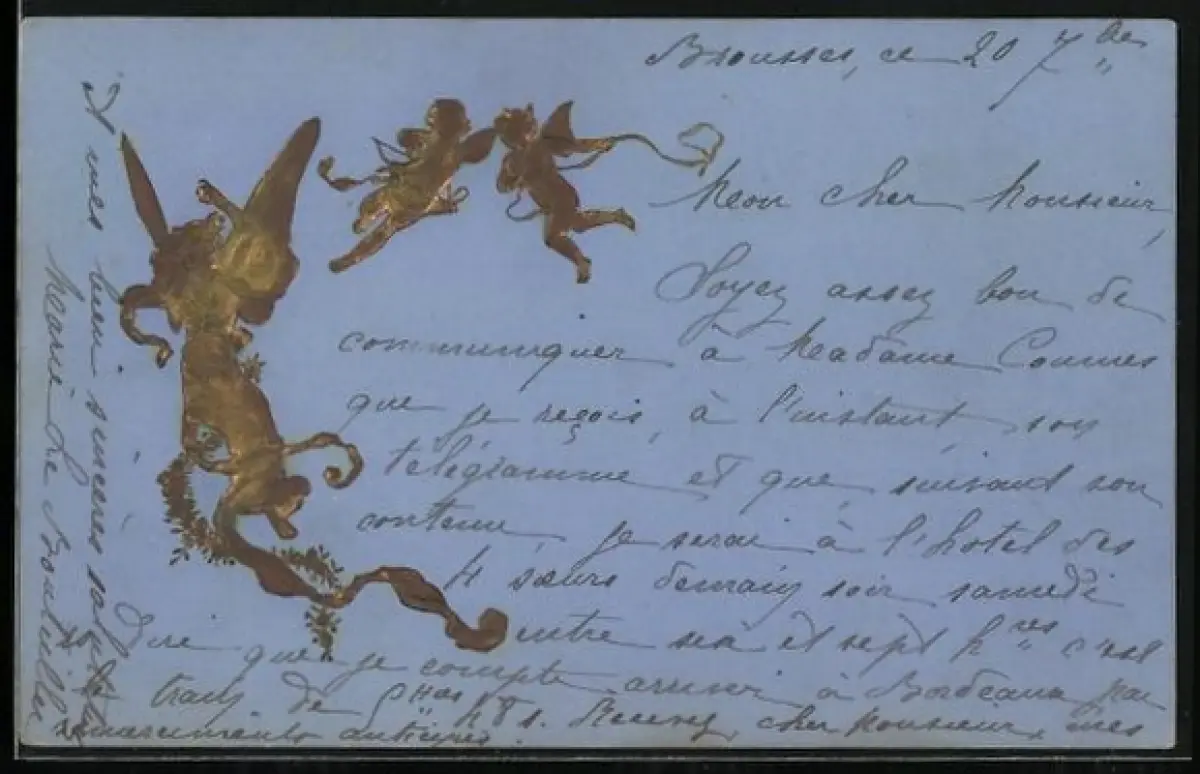 Brousses, ce 20 7bre
Mon cher Monsieur,
Soyez assez bon de
communiquer à Madame Counes
que je reçois, à l'instant son
télégramme et que, suivant son
contenu, je serai à l'hotel des
4 sœurs demain soir samedi
entre six et sept hres c'est
dire que je compte arriver à Bordeaux par
le train de 5 h 81. Recevez, cher Monsieur, mes
remerciements anticipés.
& mes bien sincères salutations
Marie Le Bouteiller